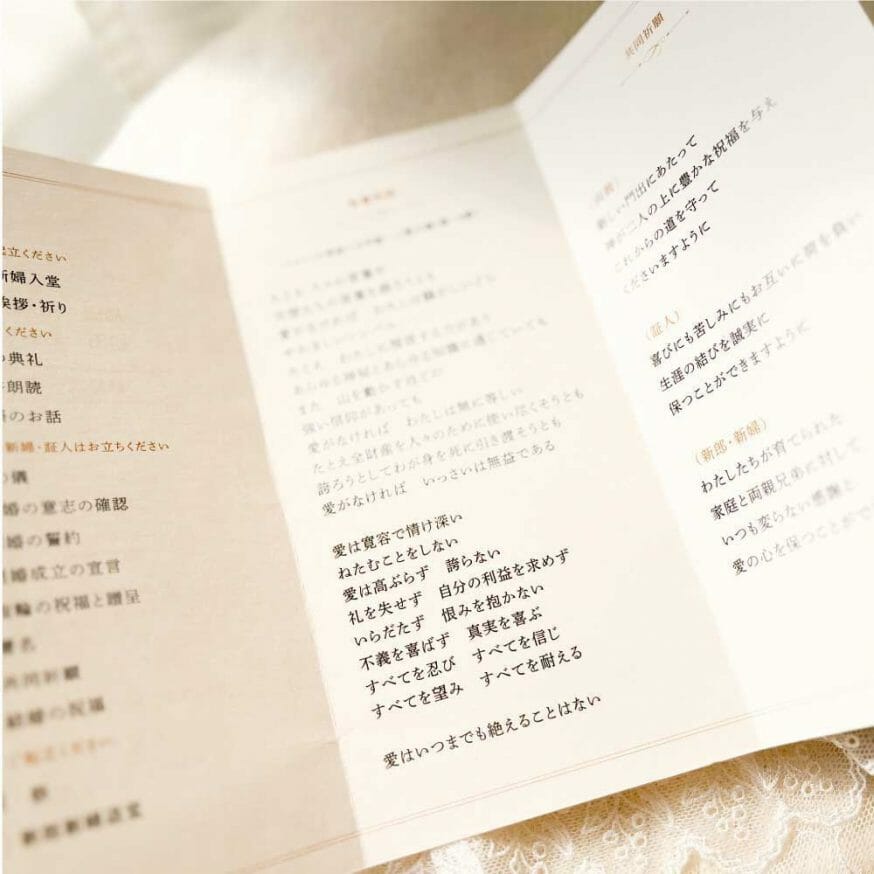 起立ください
新婦入堂
挨拶・祈り
ください
典礼
朗読
のお話
新婦・証人はお立ちください
の儀
婚の意志の確認
婚の誓約
婚成立の宣言
指輪の祝福と贈呈
署名
共同祈願
結婚の祝福
新郎新婦退堂
たとえ わたしに預言する力があり
あらゆる神秘とあらゆる知識に通じていても
また 山を動かすほどの
強い信仰があっても
愛がなければ わたしは無に等しい
たとえ全財産を人々のために使い尽くそうとも
誇ろうとしてわが身を死に引き渡そうとも
愛がなければ いっさいは無益である
愛は寛容で情け深い
ねたむことをしない
愛は高ぶらず 誇らない
礼を失せず 自分の利益を求めず
いらだたず 恨みを抱かない
不義を喜ばず 真実を喜ぶ
すべてを忍び すべてを信じ
すべてを望み すべてを耐える
愛はいつまでも絶えることはない
共同祈願
新しい門出にあたって
神が二人の上に豊かな祝福を与え
これからの道を守って
くださいますように
（証人）
喜びにも苦しみにもお互いに荷を負い
生涯の結びを誠実に
保つことができますように
（新郎・新婦）
わたしたちが育てられた
家庭と両親兄弟に対して
いつも変らない感謝と
愛の心を保つことがで